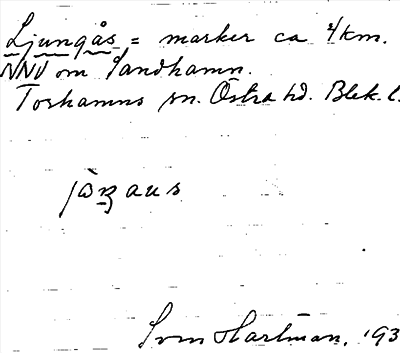 Ljungås = marker ca 4 km.
NNV om Sandhamn.
Torhamns sn. Östra hd. Blek. l.
Sven Hartman, 193